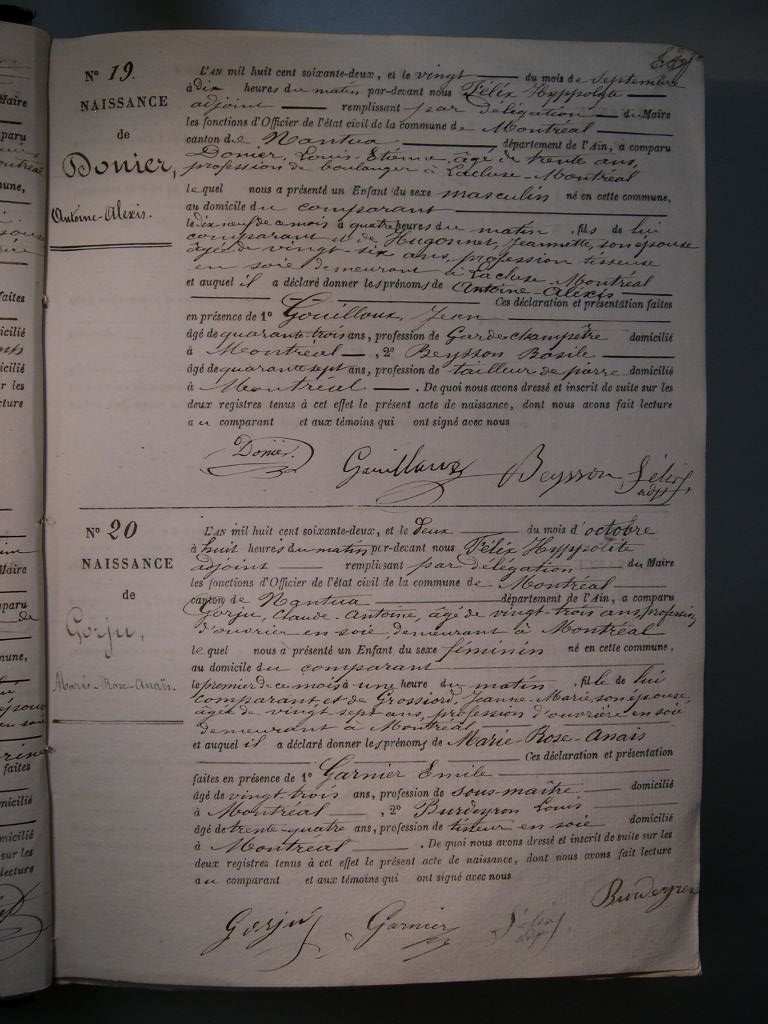 N° 19.
NAISSANCE
de
Donier,
Antoine-Alexis.
L'AN mil huit cent soixante-deux, et le vingt du mois de Septembre
à dix heures du matin par-devant nous Félix Hyppolyte
adjoint remplissant par délégation du Maire
les fonctions d'Officier de l'état civil de la commune de Montréal
canton de Nantua, département de l'Ain, a comparu
Donier, Louis-Etienne, âgé de trente ans,
profession de boulanger à Lacluse-Montréal
lequel nous a présenté un Enfant du sexe masculin né en cette commune,
au domicile du comparant
le dix-neuf de ce mois à quatre heures du matin, fils de lui
comparant et de Hugonnet, Jeannette, son épouse
âgée de vingt-six ans, profession tisseuse
en soie demeurant à Lacluse-Montréal
et auquel il a déclaré donner les prénoms de Antoine-Alexis
Ces déclaration et présentation faites
en présence de 1° Gouilloux, Jean
âgé de quarante-trois ans, profession de Garde champêtre domicilié
à Montréal, 2° Beysson Basile
âgé de quarante sept ans, profession de tailleur de pierre domicilié
à Montréal. De quoi nous avons dressé et inscrit de suite sur les
deux registres tenus à cet effet le présent acte de naissance, dont nous avons fait lecture
au comparant et aux témoins qui ont signé avec nous
Donier. Gouilloux Beysson Félix
adjt
N° 20
NAISSANCE
de
Gorju,
Marie-Rose-Anaïs.
L'AN mil huit cent soixante-deux, et le deux du mois d'octobre
à huit heures du matin par-devant nous Félix Hyppolite
adjoint remplissant par délégation du Maire
les fonctions d'Officier de l'état civil de la commune de Montréal
canton de Nantua département de l'Ain, a comparu
Gorju, Claude-Antoine, âgé de vingt-trois ans, profession
d'ouvrier en soie, demeurant à Montréal
lequel nous a présenté un Enfant du sexe féminin né en cette commune,
au domicile du comparant
le premier de ce mois à une heure du matin, fille de lui
comparant et de Grossiord, Jeanne-Marie, son épouse,
âgée de vingt sept ans, profession d'ouvrière en soie
demeurant à Montréal
et auquel il a déclaré donner les prénoms de Marie-Rose-Anaïs
Ces déclaration et présentation
faites en présence de 1° Garnier Emile
âgé de vingt trois ans, profession de sous-maître domicilié
à Montréal, 2° Burdeyron Louis
âgé de trente-quatre ans, profession de tisseur en soie domicilié
à Montréal. De quoi nous avons dressé et inscrit de suite sur les
deux registres tenus à cet effet le présent acte de naissance, dont nous avons fait lecture
au comparant et aux témoins qui ont signé avec nous
Burdeyron
Gorju Garnier Félix
adjt